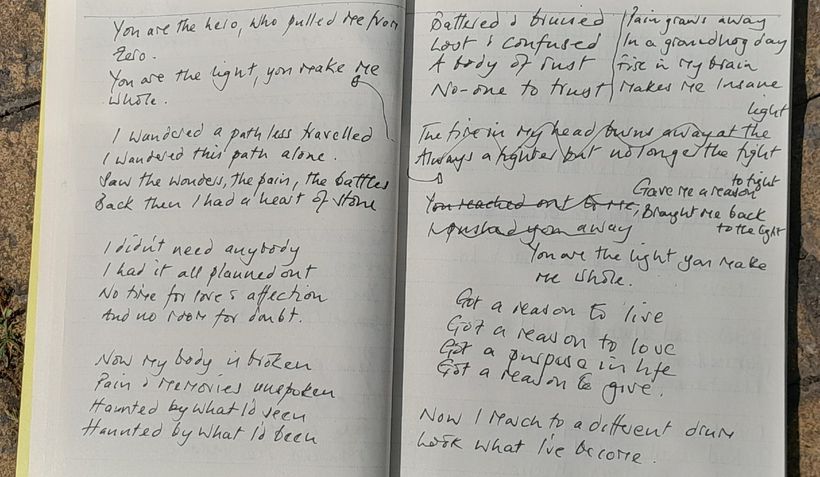 You are the hero, who pulled me from
Zero.
You are the light, you make me
whole.
I wandered a path less travelled
I wandered this path alone.
Saw the wonders, the pain, the battles
Back then I had a heart of stone
I didn't need anybody
I had it all planned out
No time for love & affection
And no room for doubt.
Now my body is broken
Pain & memories unspoken
Haunted by what I'd seen
Haunted by what I'd been
Battered & bruised
Lost & confused
A body of rust
No-one to trust
Pain gnaws away
In a groundhog day
Fire in my brain
Makes me insane
light
The fire in my head burns away at the
Always a fighter but no longer the fight
You reached out to me,
I pushed you away
Gave me a reason to fight
Brought me back to the light
You are the light you make
me whole.
Got a reason to live
Got a reason to love
Got a purpose in life
Got a reason to give.
Now I march to a different drum
Look what I've become.